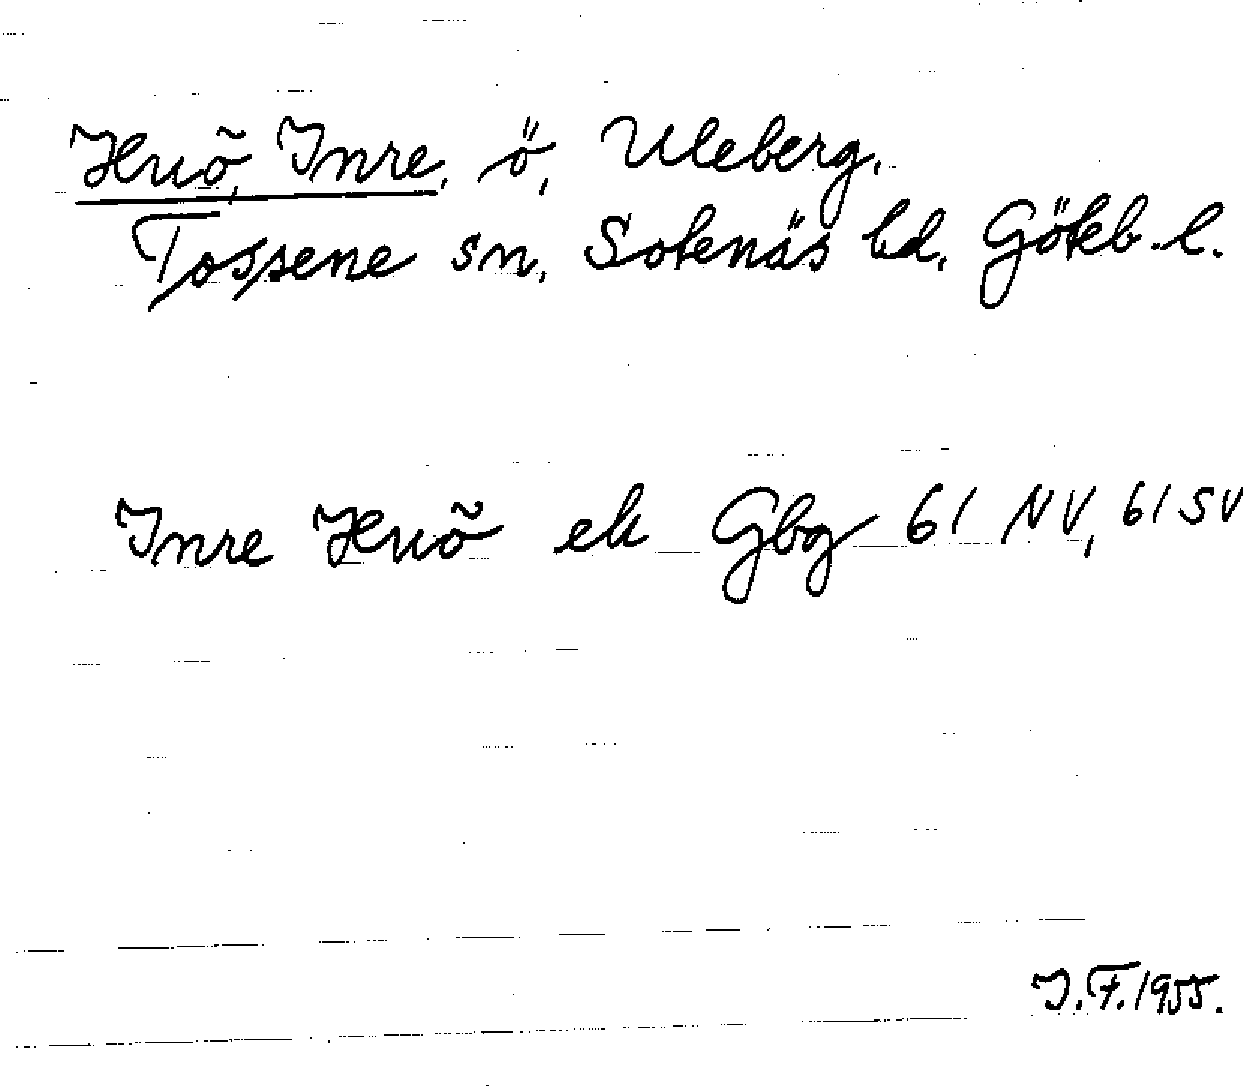 Huö, Inre, ö, Uleberg,
Tossene sn, Sotenäs hd, Göteb. l.
Inre Huö ek Gbg 61 NV, 61 SV
I.F. 1955.